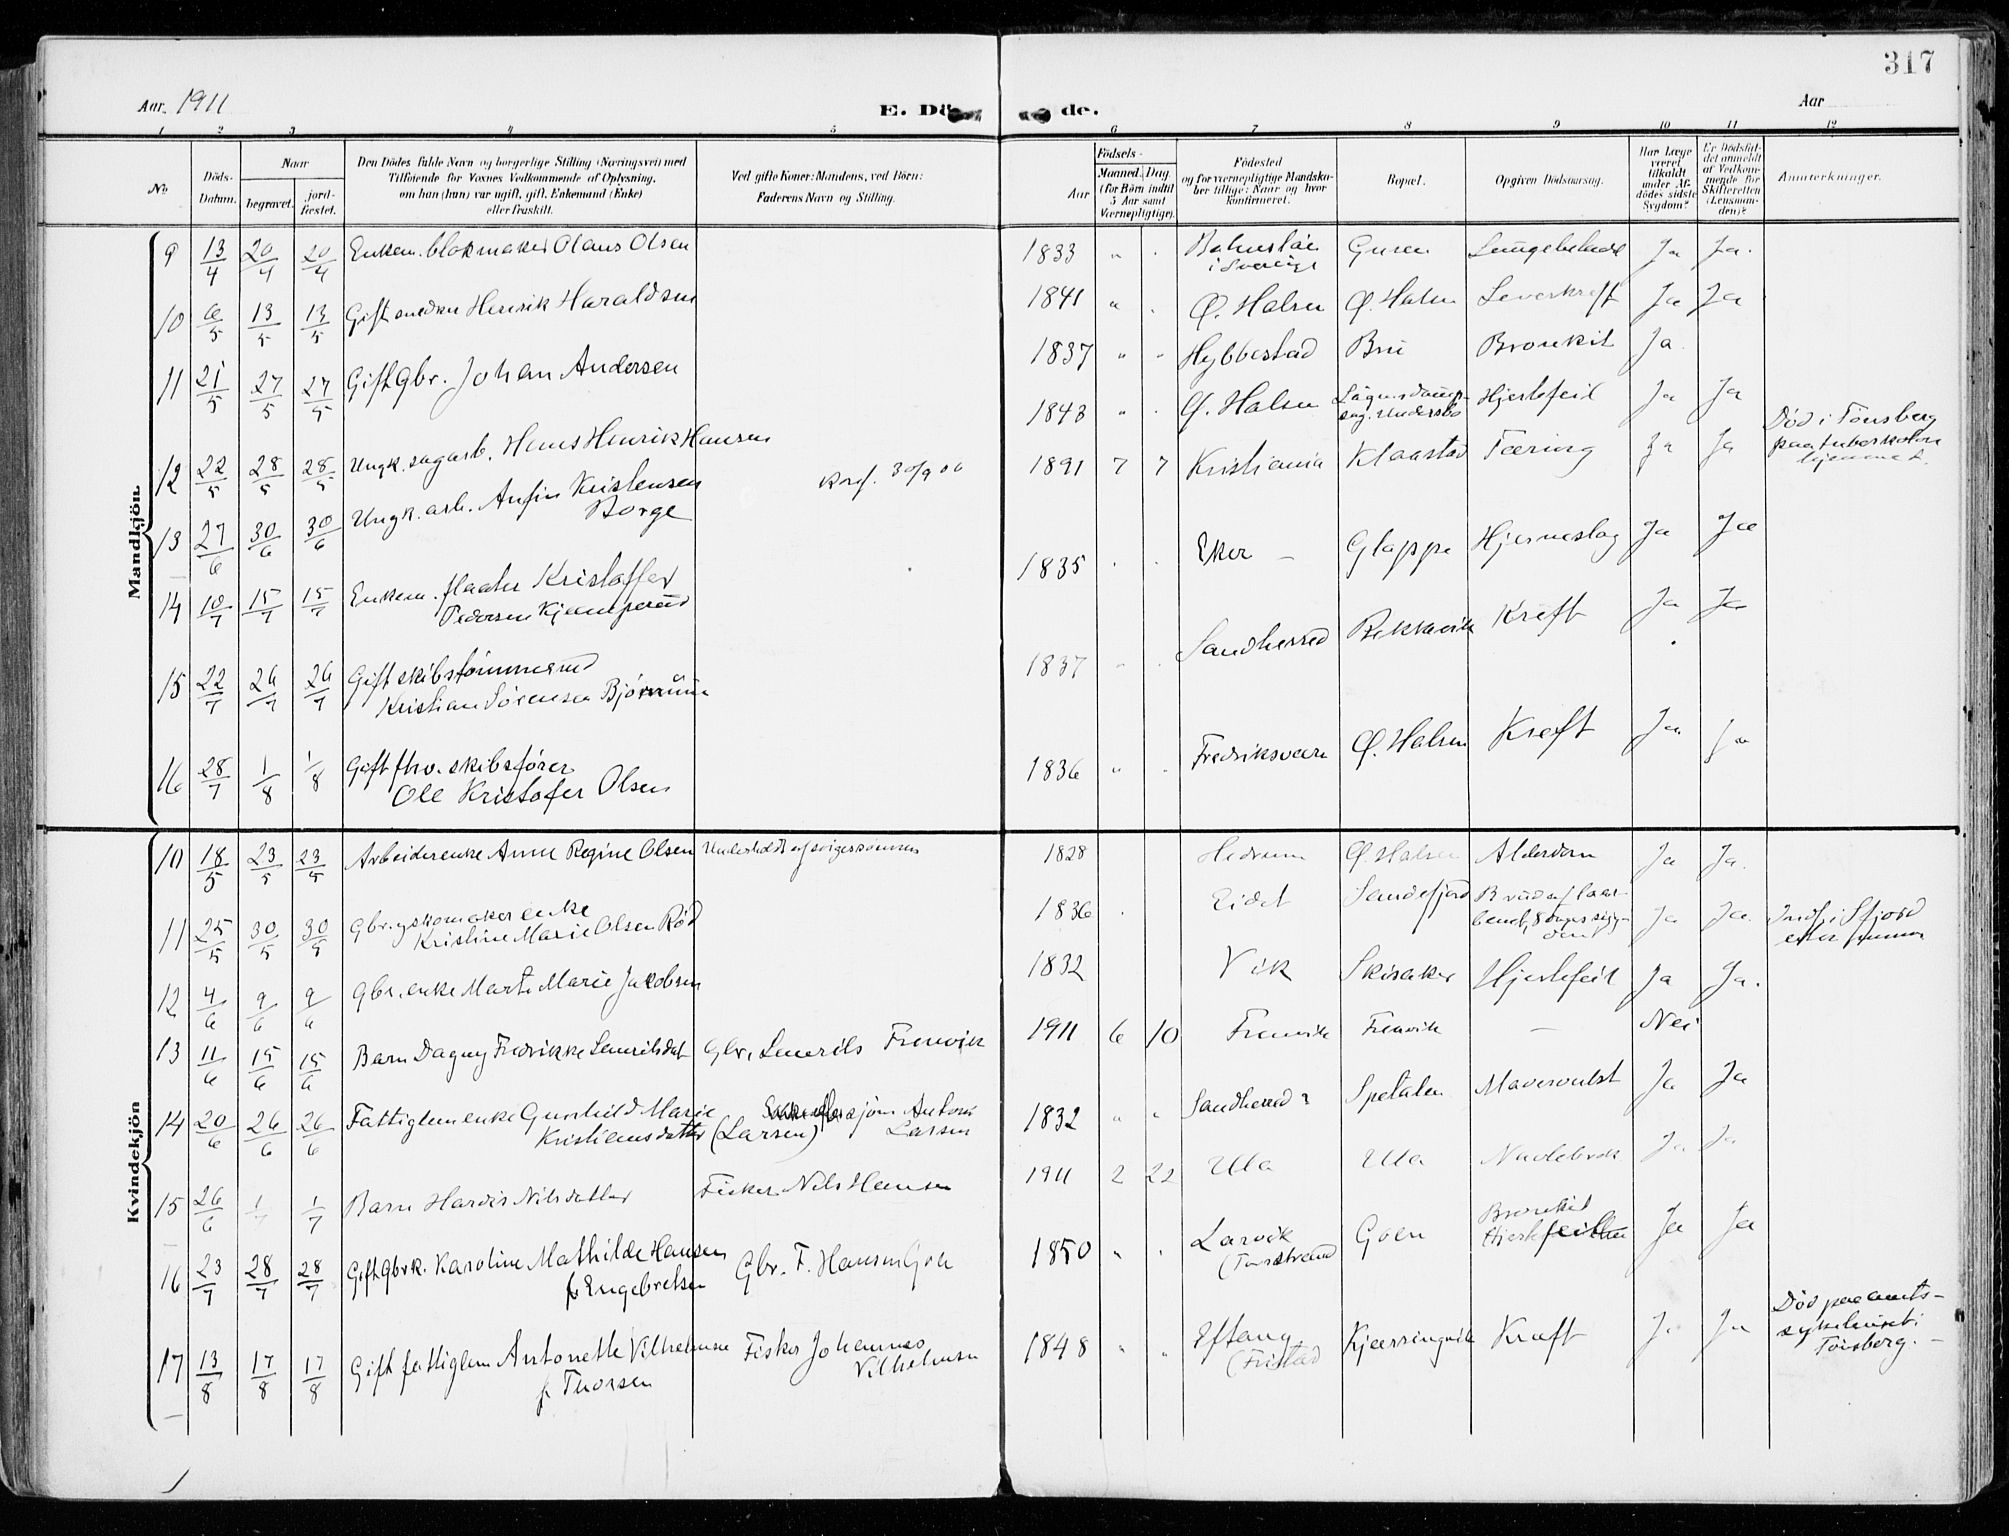 317
Aar 1911
E. Dö de.
Aar
1 2 3 4 5 6 7 8 9 10 11 12
No
Döds-Datum.
Naar
begravet.
jord-fæstet.
Den Dödes fulde Navn og borgerlige Stilling (Næringsvei) med
Tilföiende for Voxnes Vedkommende af Oplysning,
om han (hun) var ugift, gift, Enkemand (Enke)
eller fraskilt.
Ved gifte Koner: Mandens, ved Börn:
Faderens Navn og Stilling.
Födsels-
Aar
Maaned. Dag.
(for Börn indtil
5 Aar samt
Værnepligtige).
Födested
og for værnepligtige Mandska-
ber tillige: Naar og hvor
konfirmeret.
Bopæl.
Opgiven Dödsaarsag.
Har Læge
været
tilkaldt
under Af-
dödes sidste
Sygdom?
Er Dödsfal-
det anmeldt
af Vedkom-
mende for
Skifteretten
(Lensman-
den)?
Anmærkninger.
Mandkjön
9 13/4 20/4 20/4 Enkem. blokmaker Olaus Olsen 1833 " . i Sverige Guren Ja Ja.
10 6/5 13/5 13/5 Gift Henrik Haraldsen 1841 " . Ø. Halsen Ø. Halsen Leverkreft Ja Ja
11 21/5 27/5 27/5 Gift Gbr. Johan Andersen 1837 " " Hybbestad Bru Bronkit Ja
12 22/5 28/5 28/5 Ungk. sagarb. Hans Henrik Hansen 1843 " . Ø. Halsen Hjertefeil Ja Ja
13 27/6 30/6 30/6 Ungk. arb. Anfin Kristensen
Borge
Konf. 30/9 06 1891 7 7 Kristiania Klaastad Tæring Ja Ja Død i Tønsberg
paa tuberkulose
hjemmet.
14 10/7 15/7 15/7 Enkem. Kristoffer
Pedersen Kjæmperud 1835 . . Eker – Gloppe Hjerneslag Ja Ja
15 22/7 26/7 26/7 Gift skibstømmermd
Kristian Sørensen Bjønnum 1837 " . Sandherred Rekkevik Kreft Ja Ja
16 28/7 1/8 1/8 Gift fhv. skibsfører
Ole Kristofer Olsen 1836 " . Fredriksværn Ø. Halsen Kreft Ja Ja
Kvindekjön
10 18/5 23/5 23/5 Arbeiderenke Anne Regine Olsen Underholdt af svigersønnen 1828 Hedrum Ø. Halsen Alderdom Ja Ja.
11 25/5 30/5 30/5 Gbr. og skomaker enke
Kristine Marie Olsen Rød 1836 . Eidet Sandefjord Brud af laar-
benet, 8 dages syg-
dom Ja Ja Indf. i Sfjord
12 4/6 9/6 9/6 Gbr. enke Marte Marie Jakobsen 1832 Vik Skisaker Hjertefeil Ja Ja.
13 11/6 15/6 15/6 Barn Dagny Fredrikke Lauritsdat. Gbr. Laurits Fremvik 1911 6 10 Fremvik Fremvik – Nei
14 20/6 26/6 26/6 Fattiglem enke Gunhild Marie
Kristiansdatter (Larsen) sjøm Anton
Larsen 1832 " " Sandherred? Spetalen Ja Ja
15 26/6 1/7 1/7 Barn Hardis Nilsdatter Fisker Nils Hansen 1911 2 22 Ula Ula Navlebrok Ja Ja
16 23/7 28/7 28/7 Gift Gbrk. Karoline Mathilde Hansen
f. Engebretsen Gbr. F. Hansen Goen 1850 " . Larvik
(Torstrand Goen Bronkit
Hjertefeil Ja Ja
17 13/8 17/8 17/8 Gift fattiglem Antonette Vilhelmsen
f. Thorsen Fisker Johannes
Vilhelmsen 1848 " " Eftang
(Fristad Kjærringvik Kreft Ja Ja Død paa amts-
sykehuset i
Tønsberg. –